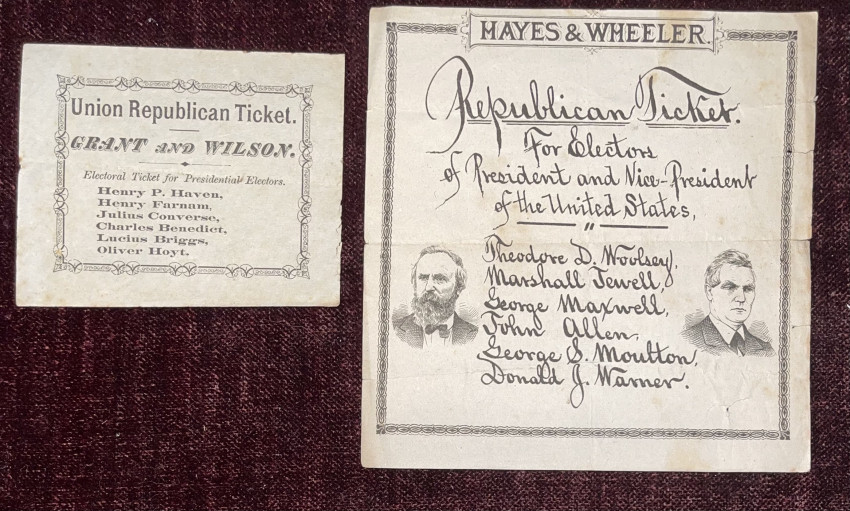 Union Republican Ticket.
GRANT AND WILSON.
Electoral Ticket for Presidential Electors.
Henry P. Haven,
Henry Farnam,
Julius Converse,
Charles Benedict,
Lucius Briggs,
Oliver Hoyt.
HAYES & WHEELER.
Republican Ticket.
For Electors
of President and Vice-President
of the United States,
"
Theodore D. Woolsey,
Marshall Jewell,
George Maxwell,
John Allen,
George S. Moulton,
Donald J. Warner.